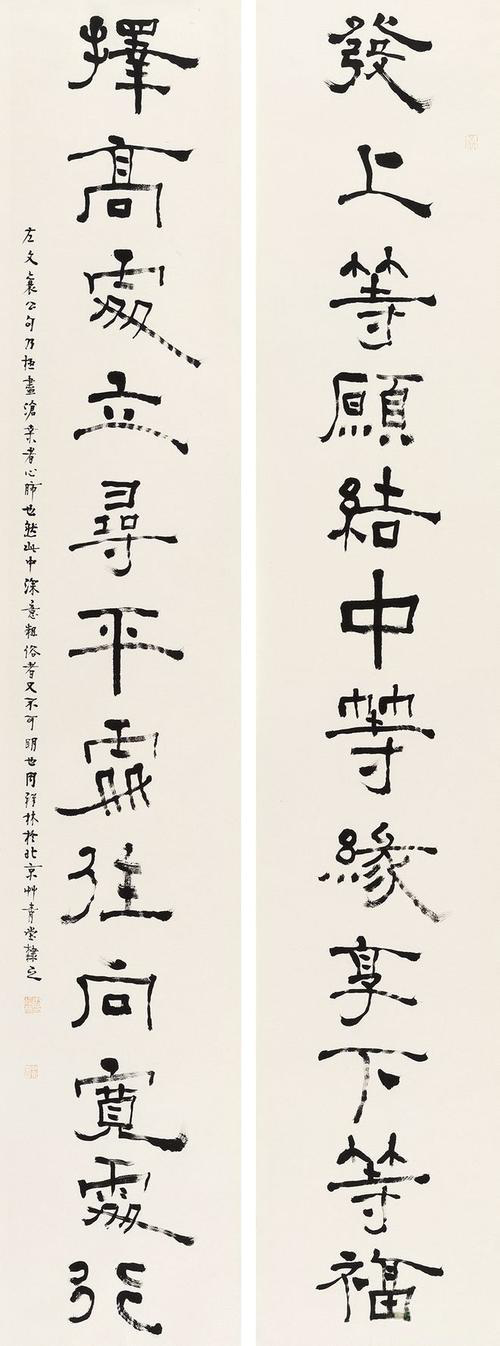 發上等願結中等緣享下等福
擇高處立尋平處往向寬處行
左文襄公句乃極盡滄桒者心肺也然此中深意粗俗者又不可明也周祥林於北京艸青堂隸之